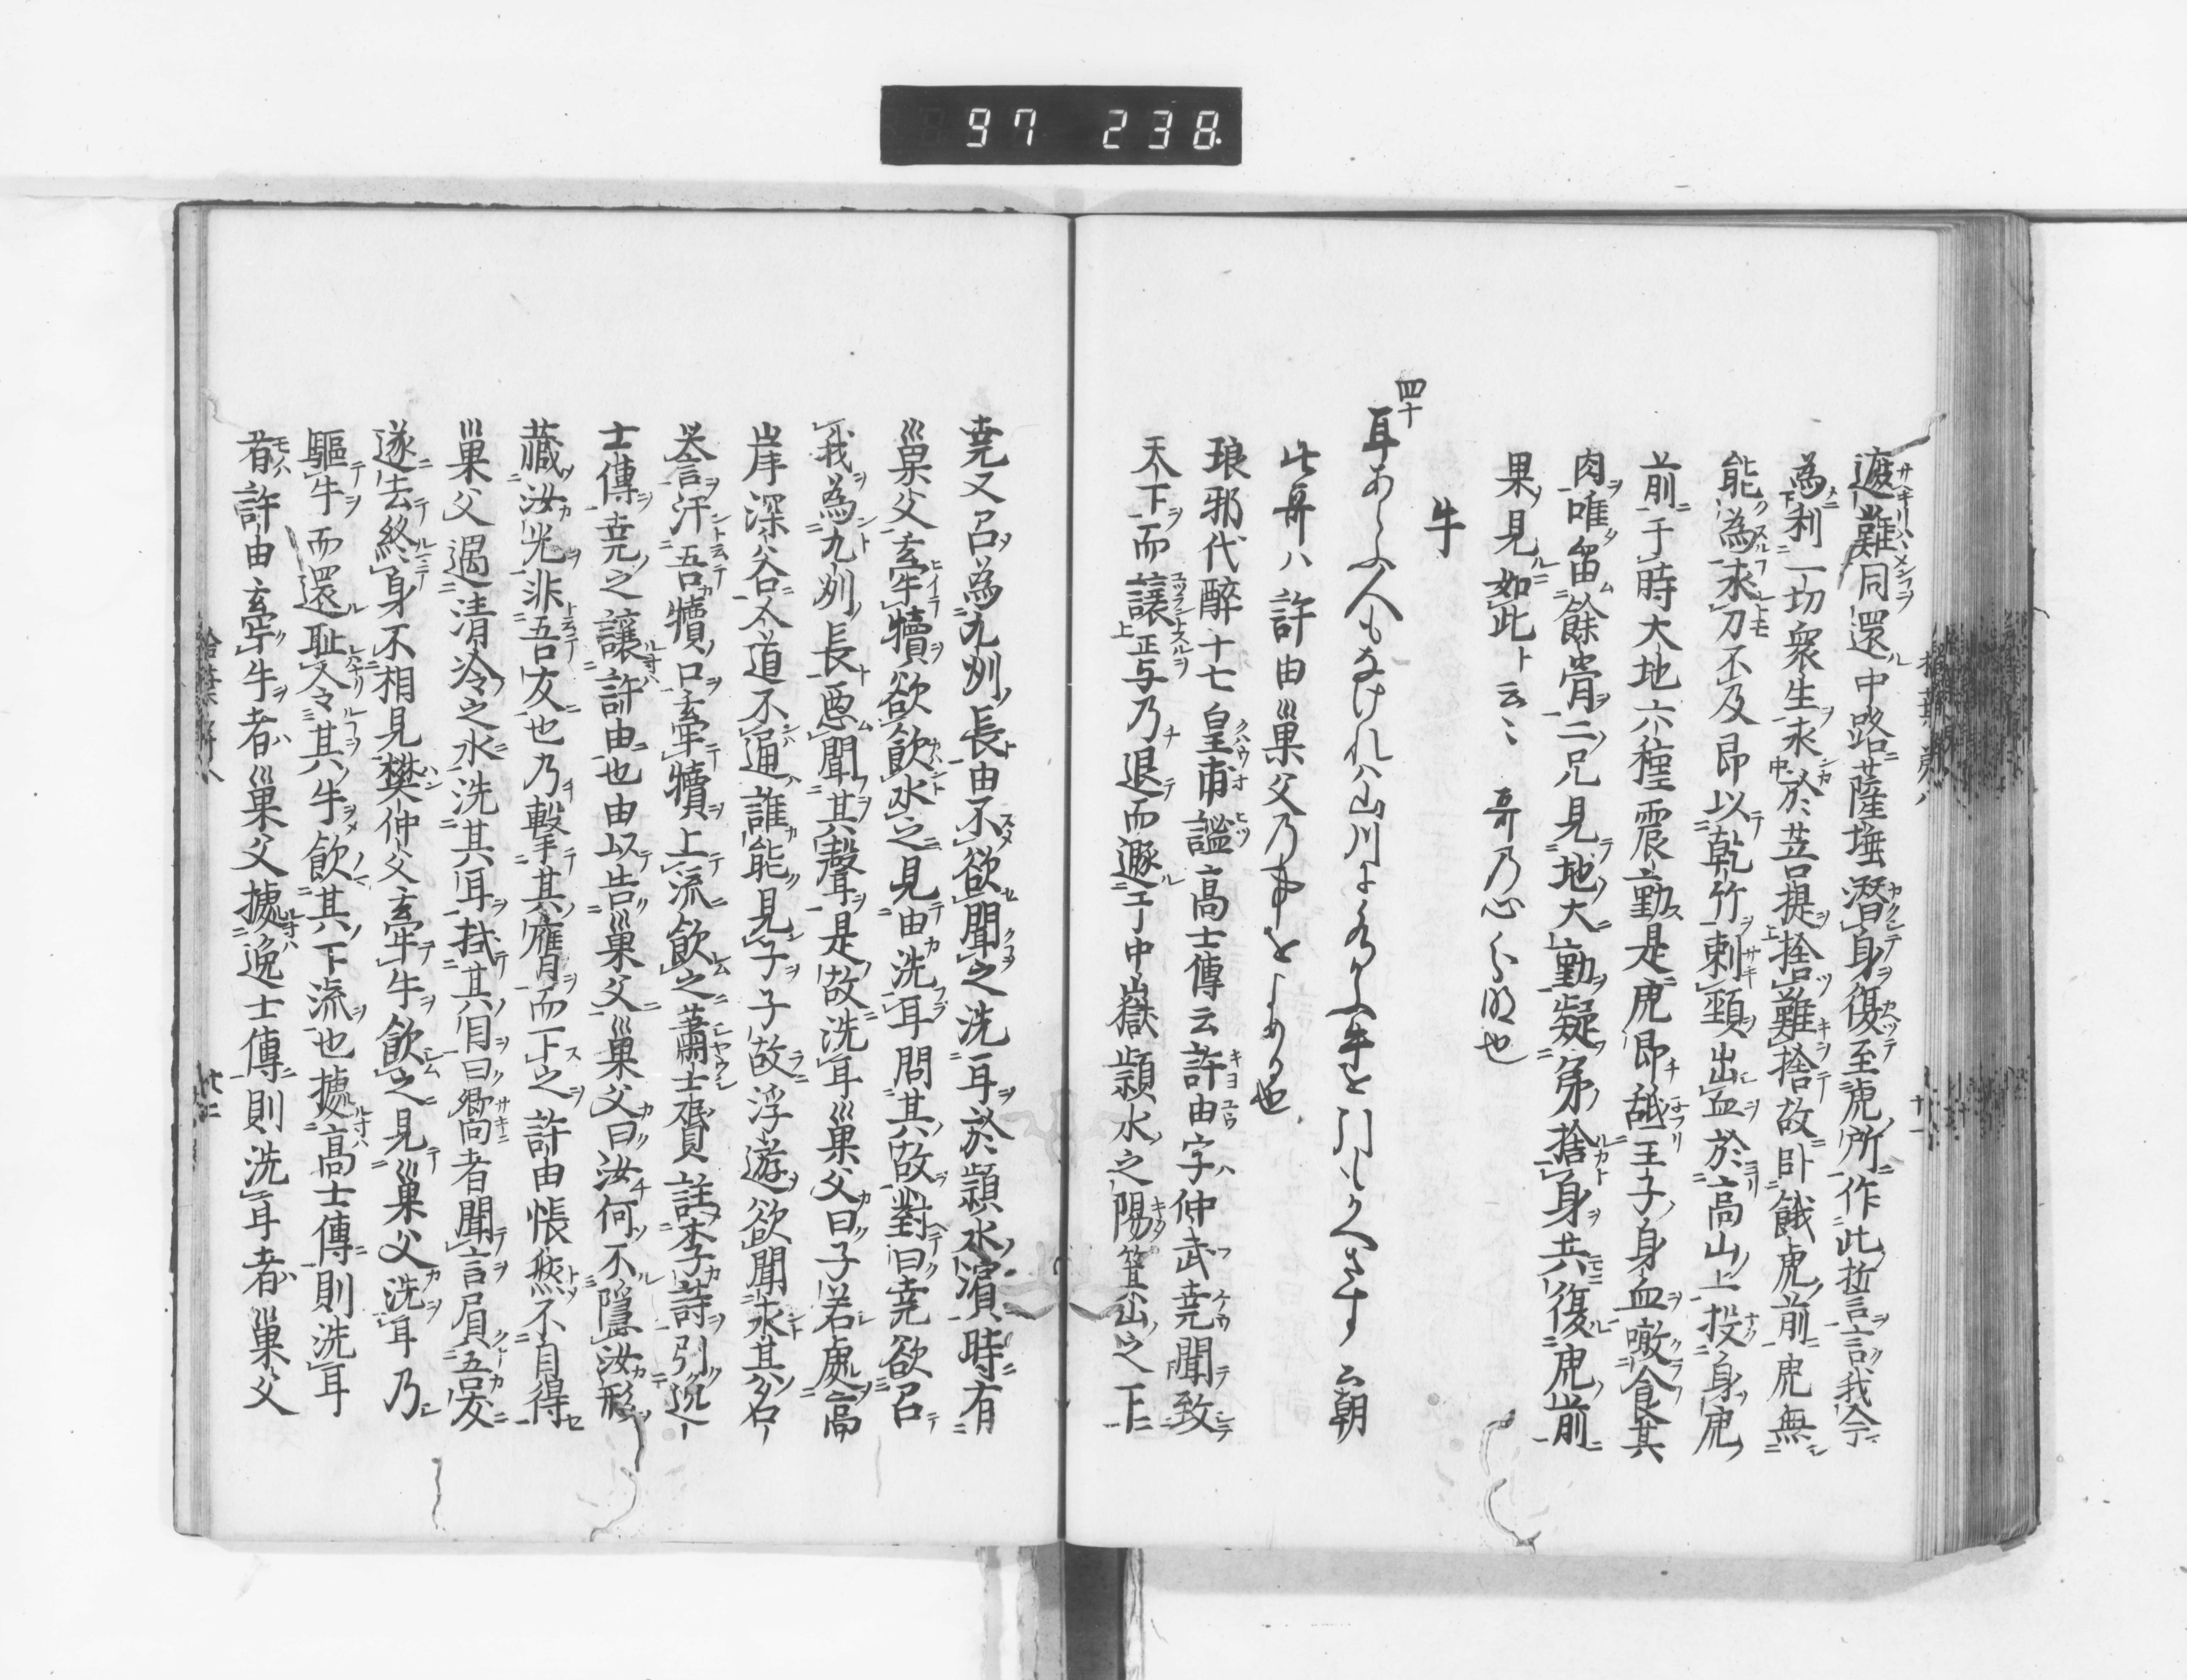 97 238
遮難同還中路薩埵潜身復至虎所作此誓言言我今
為利一切衆生求於菩提捨難捨故卧餓虎前虎無
能為求刀不及即以乾竹刺頸出血於高山上投身虎
前于時大地六種震動是虎即舐王子身血噉食其
肉唯留餘骨二兄見地大動疑弟捨身共復虎前
果見如此ト云〻 哥乃心分明也
牛
四十
耳あらふ人もなけれハ山川によるふ牛を引もかへさす 云朝
此哥ハ許由巢父乃事をよめる也
琅邪代醉十七皇甫謐高士傳云許由字仲武堯聞致
天下而讓与乃退而遯于中嶽潁水之陽箕山之下
堯又召為九州長由不欲聞之洗耳於潁水濱時有
巢父牽犢欲飲水之見由洗耳問其故對曰堯欲召
我為九州長惡聞其聲是故洗耳巢父曰子若處高
岸深谷人道不通誰能見子子故浮遊欲聞求其名
誉汙吾犢口牽犢上流飲之蕭士贇註李詩引逸
士傳堯之讓許由也由以告巢父巢父曰汝何不隱汝形
藏汝光非吾友也乃擊其膺而下之許由悵然不自得
巢父遇清冷之水洗其耳拭其目曰嚮者聞言負吾友
遂去終身不相見樊仲父牽牛飲之見巢父洗耳乃
驅牛而還耻令其牛飲其下流也據高士傳則洗耳
者許由牽牛者巢父據逸士傳則洗耳者巢父